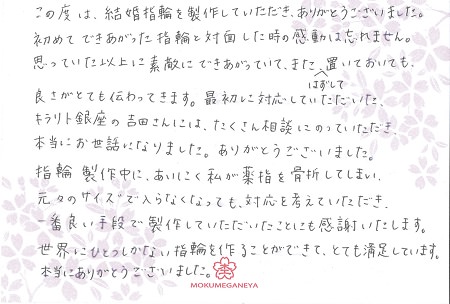 この度は、結婚指輪を製作していただき、ありがとうございました。
初めてできあがった指輪と対面した時の感動は忘れません。
思っていた以上に素敵にできあがっていて、また、置いておいても、
はずして
良さがとても伝わってきます。最初に対応していただいた、
キラリト銀座の吉田さんには、たくさん相談にのっていただき、
本当にお世話になりました。ありがとうございました。
指輪製作中に、あいにく私が薬指を骨折してしまい、
元々のサイズで入らなくなっても、対応を考えていただき、
一番良い手段で製作していただいたことにも感謝いたします。
世界にひとつしかない指輪を作ることができて、とても満足しています。
本当にありがとうございました。
MOKUMEGANEYA